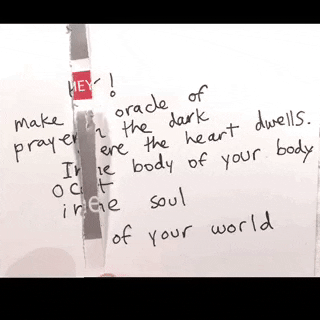 HEY!
make oracle of
prayer in the dark
where the heart dwells.
In the body of your body
in the soul
of your world